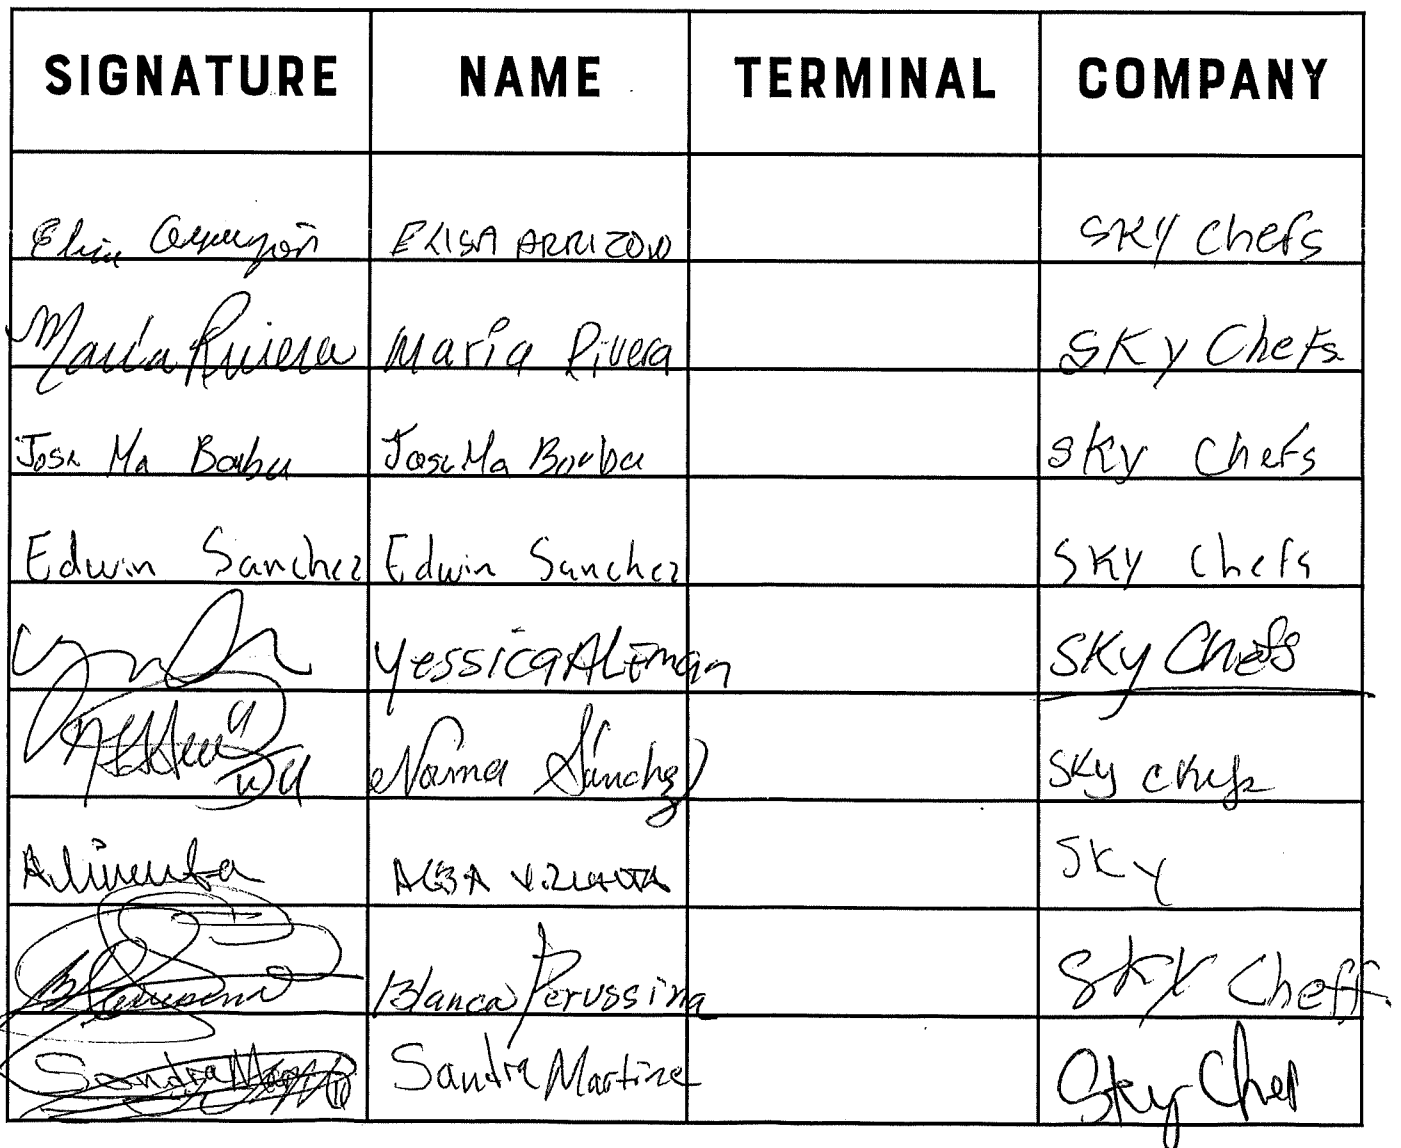 SIGNATURE NAME TERMINAL COMPANY
ELISA ARRIZON SKY Chefs
Maria Rivera Maria Rivera SKY Chefs
Jose Ma Barba Jose Ma Barba SKY Chefs
Edwin Sanchez Edwin Sanchez SKY Chefs
Yessica Aleman SKY Chefs
Norma Sánchez SKY Chefs
ALBA SKY
Blanca Perussina SKY Cheff
Sandra Martine Sky Chef